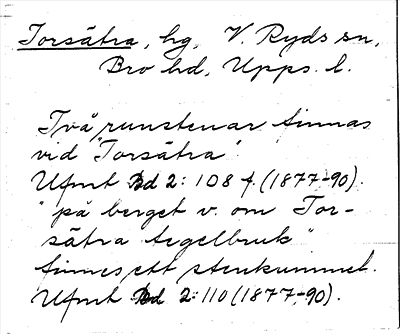 Torsätra, hg, V. Ryds sn,
Bro hd, Upps. l.
Två runstenar finnas
vid "Torsätra".
Ufmt Bd 2: 108 f. (1877-90).
"på berget v. om Tor-
sätra tegelbruk"
finnes ett stenkummel.
Ufmt Bd 2: 110 (1877-90).